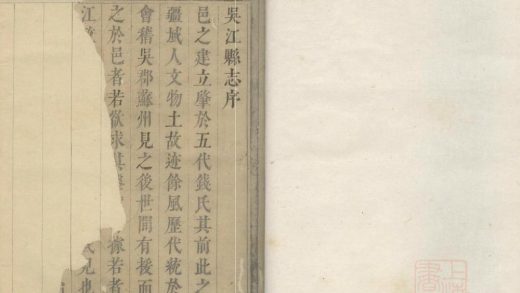 吳江縣志序
邑之建立肇於五代錢氏其前此之
疆域人文物土故迹餘風歷代統於
會稽吳郡蘇州見之後世間有援而
之於邑者若欲求其
若者
江
見也
上
書